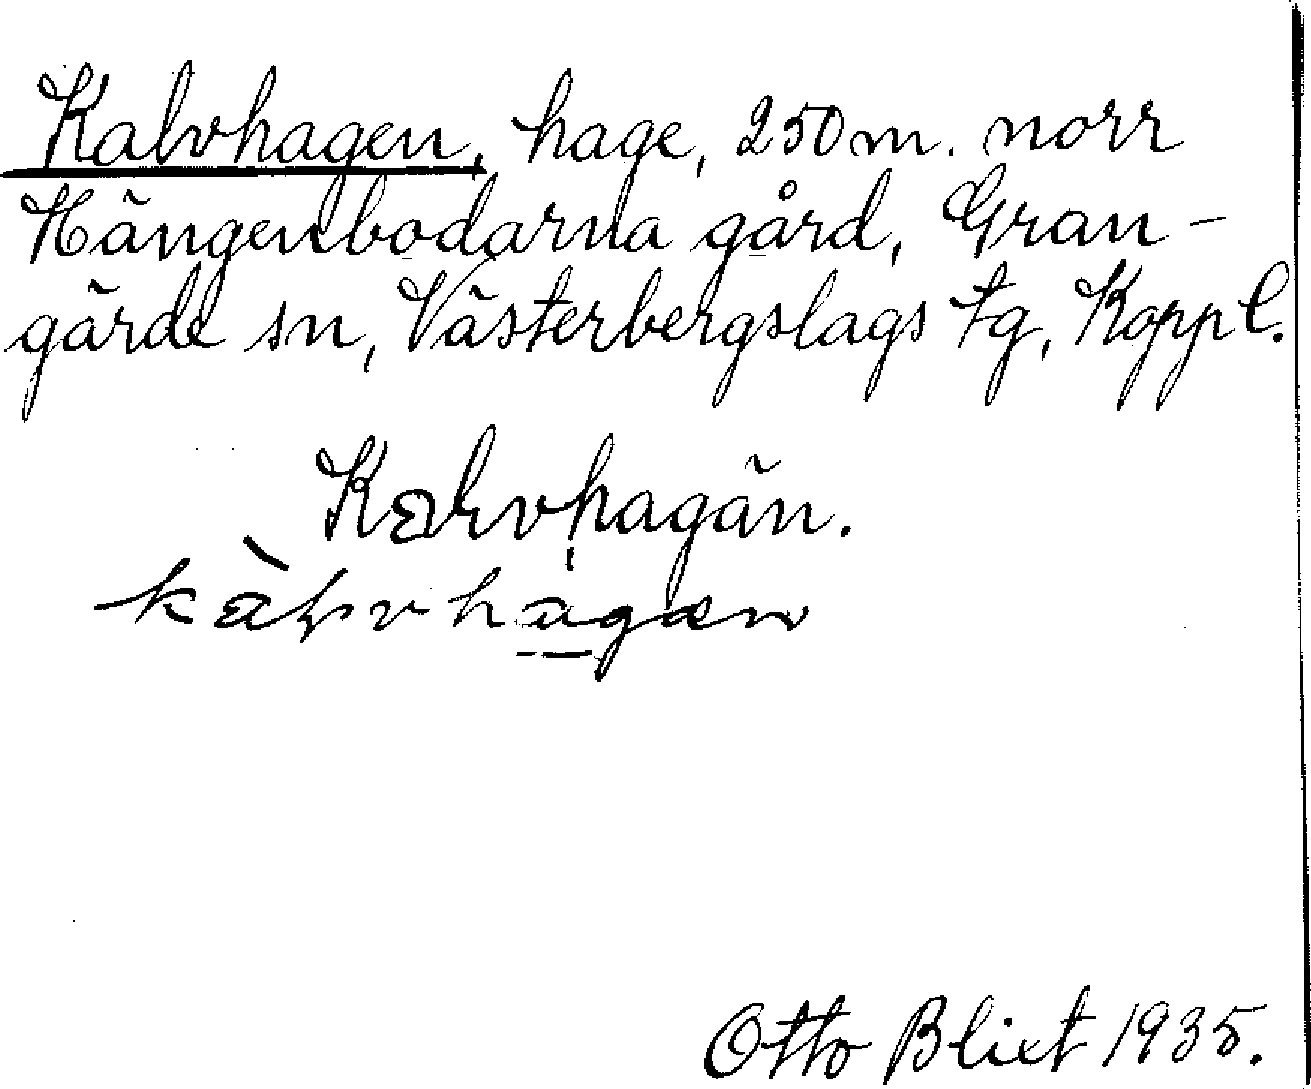 Kalvhagen, hage, 250 m. norr
Hängenbodarna gård, Gran-
gärde sn, Västerbergslags tg, Koppl.
Kalvhagän.
kàlvhagæn
Otto Blixt 1935.